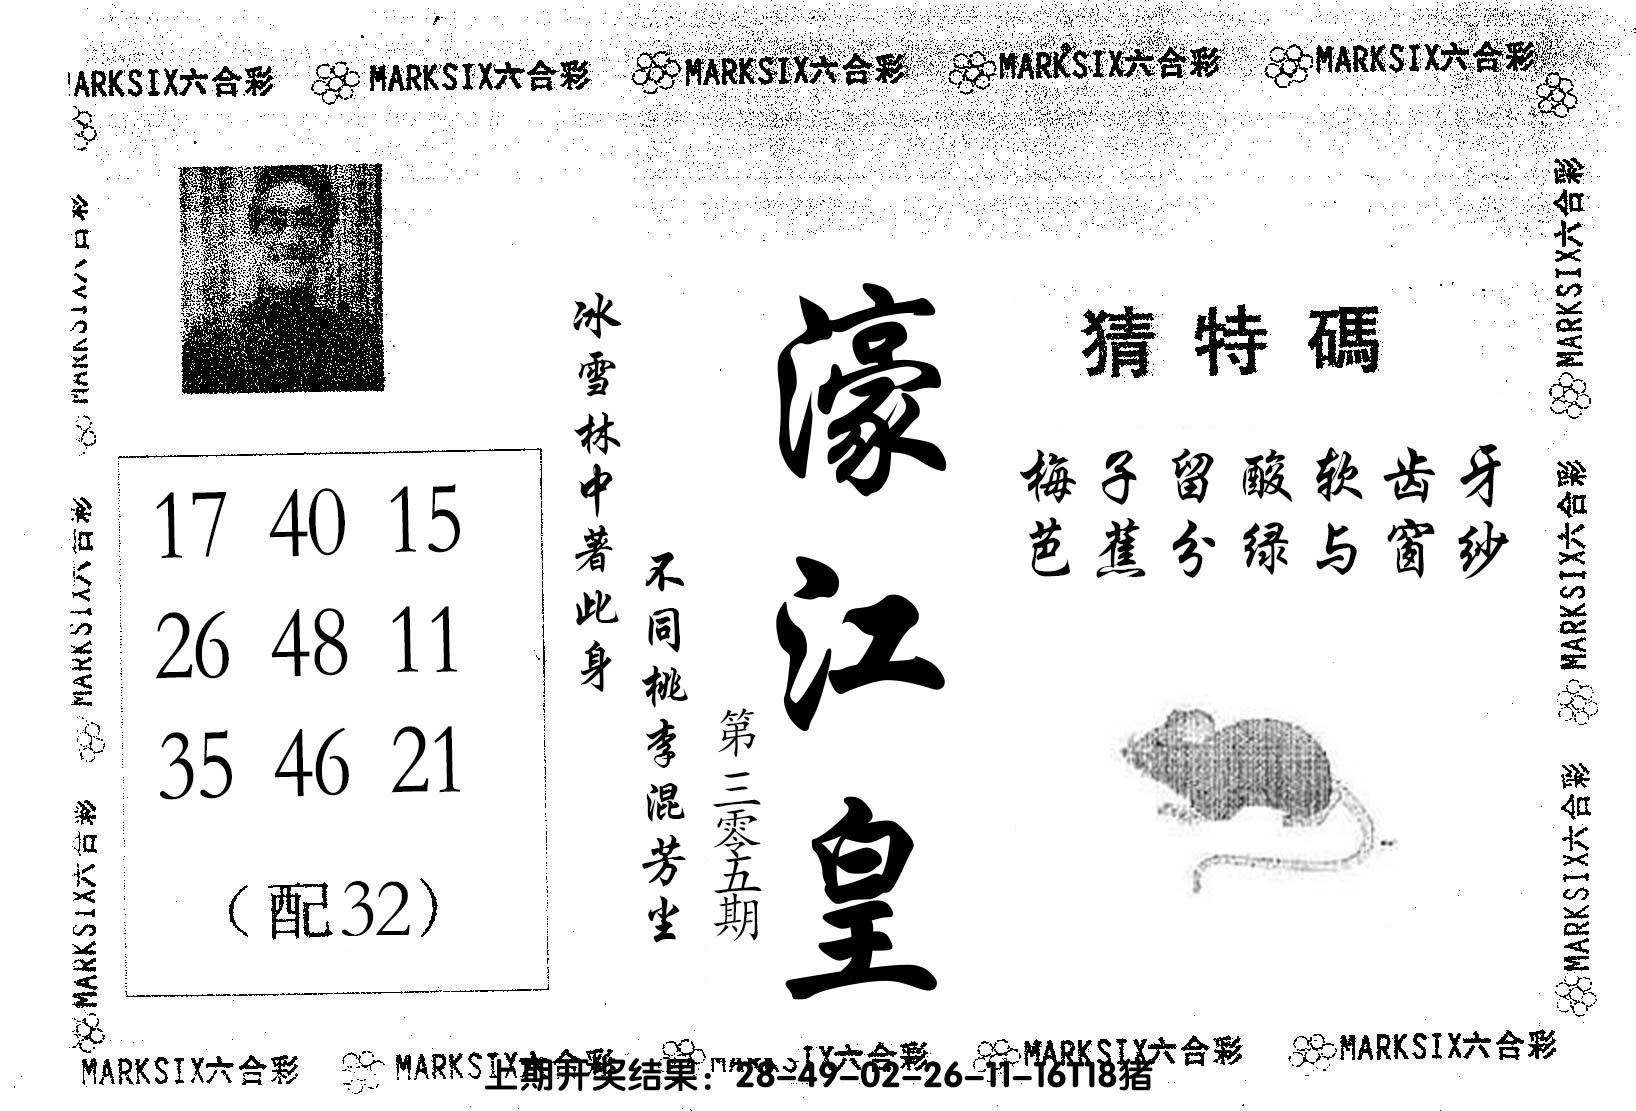 MARKSIX六合彩 MARKSIX六合彩 MARKSIX六合彩 MARKSIX六合彩 MARKSIX六合彩
猜特碼
梅子留酸软齿牙
芭蕉分绿与窗纱
濠江皇
第三零五期
冰雪林中著此身
不同桃李混芳尘
17 40 15
26 48 11
35 46 21
（配32）
MARKSIX六合彩
MARKSIX六合彩
MARKSIX六合彩
MARKSIX六合彩
MARKSIX六合彩
MARKSIX六合彩
MARKSIX六合彩 MARKSIX六合彩 MARKSIX六合彩 MARKSIX六合彩 MARKSIX六合彩
上期开奖结果：28-49-02-26-11-16T18猪